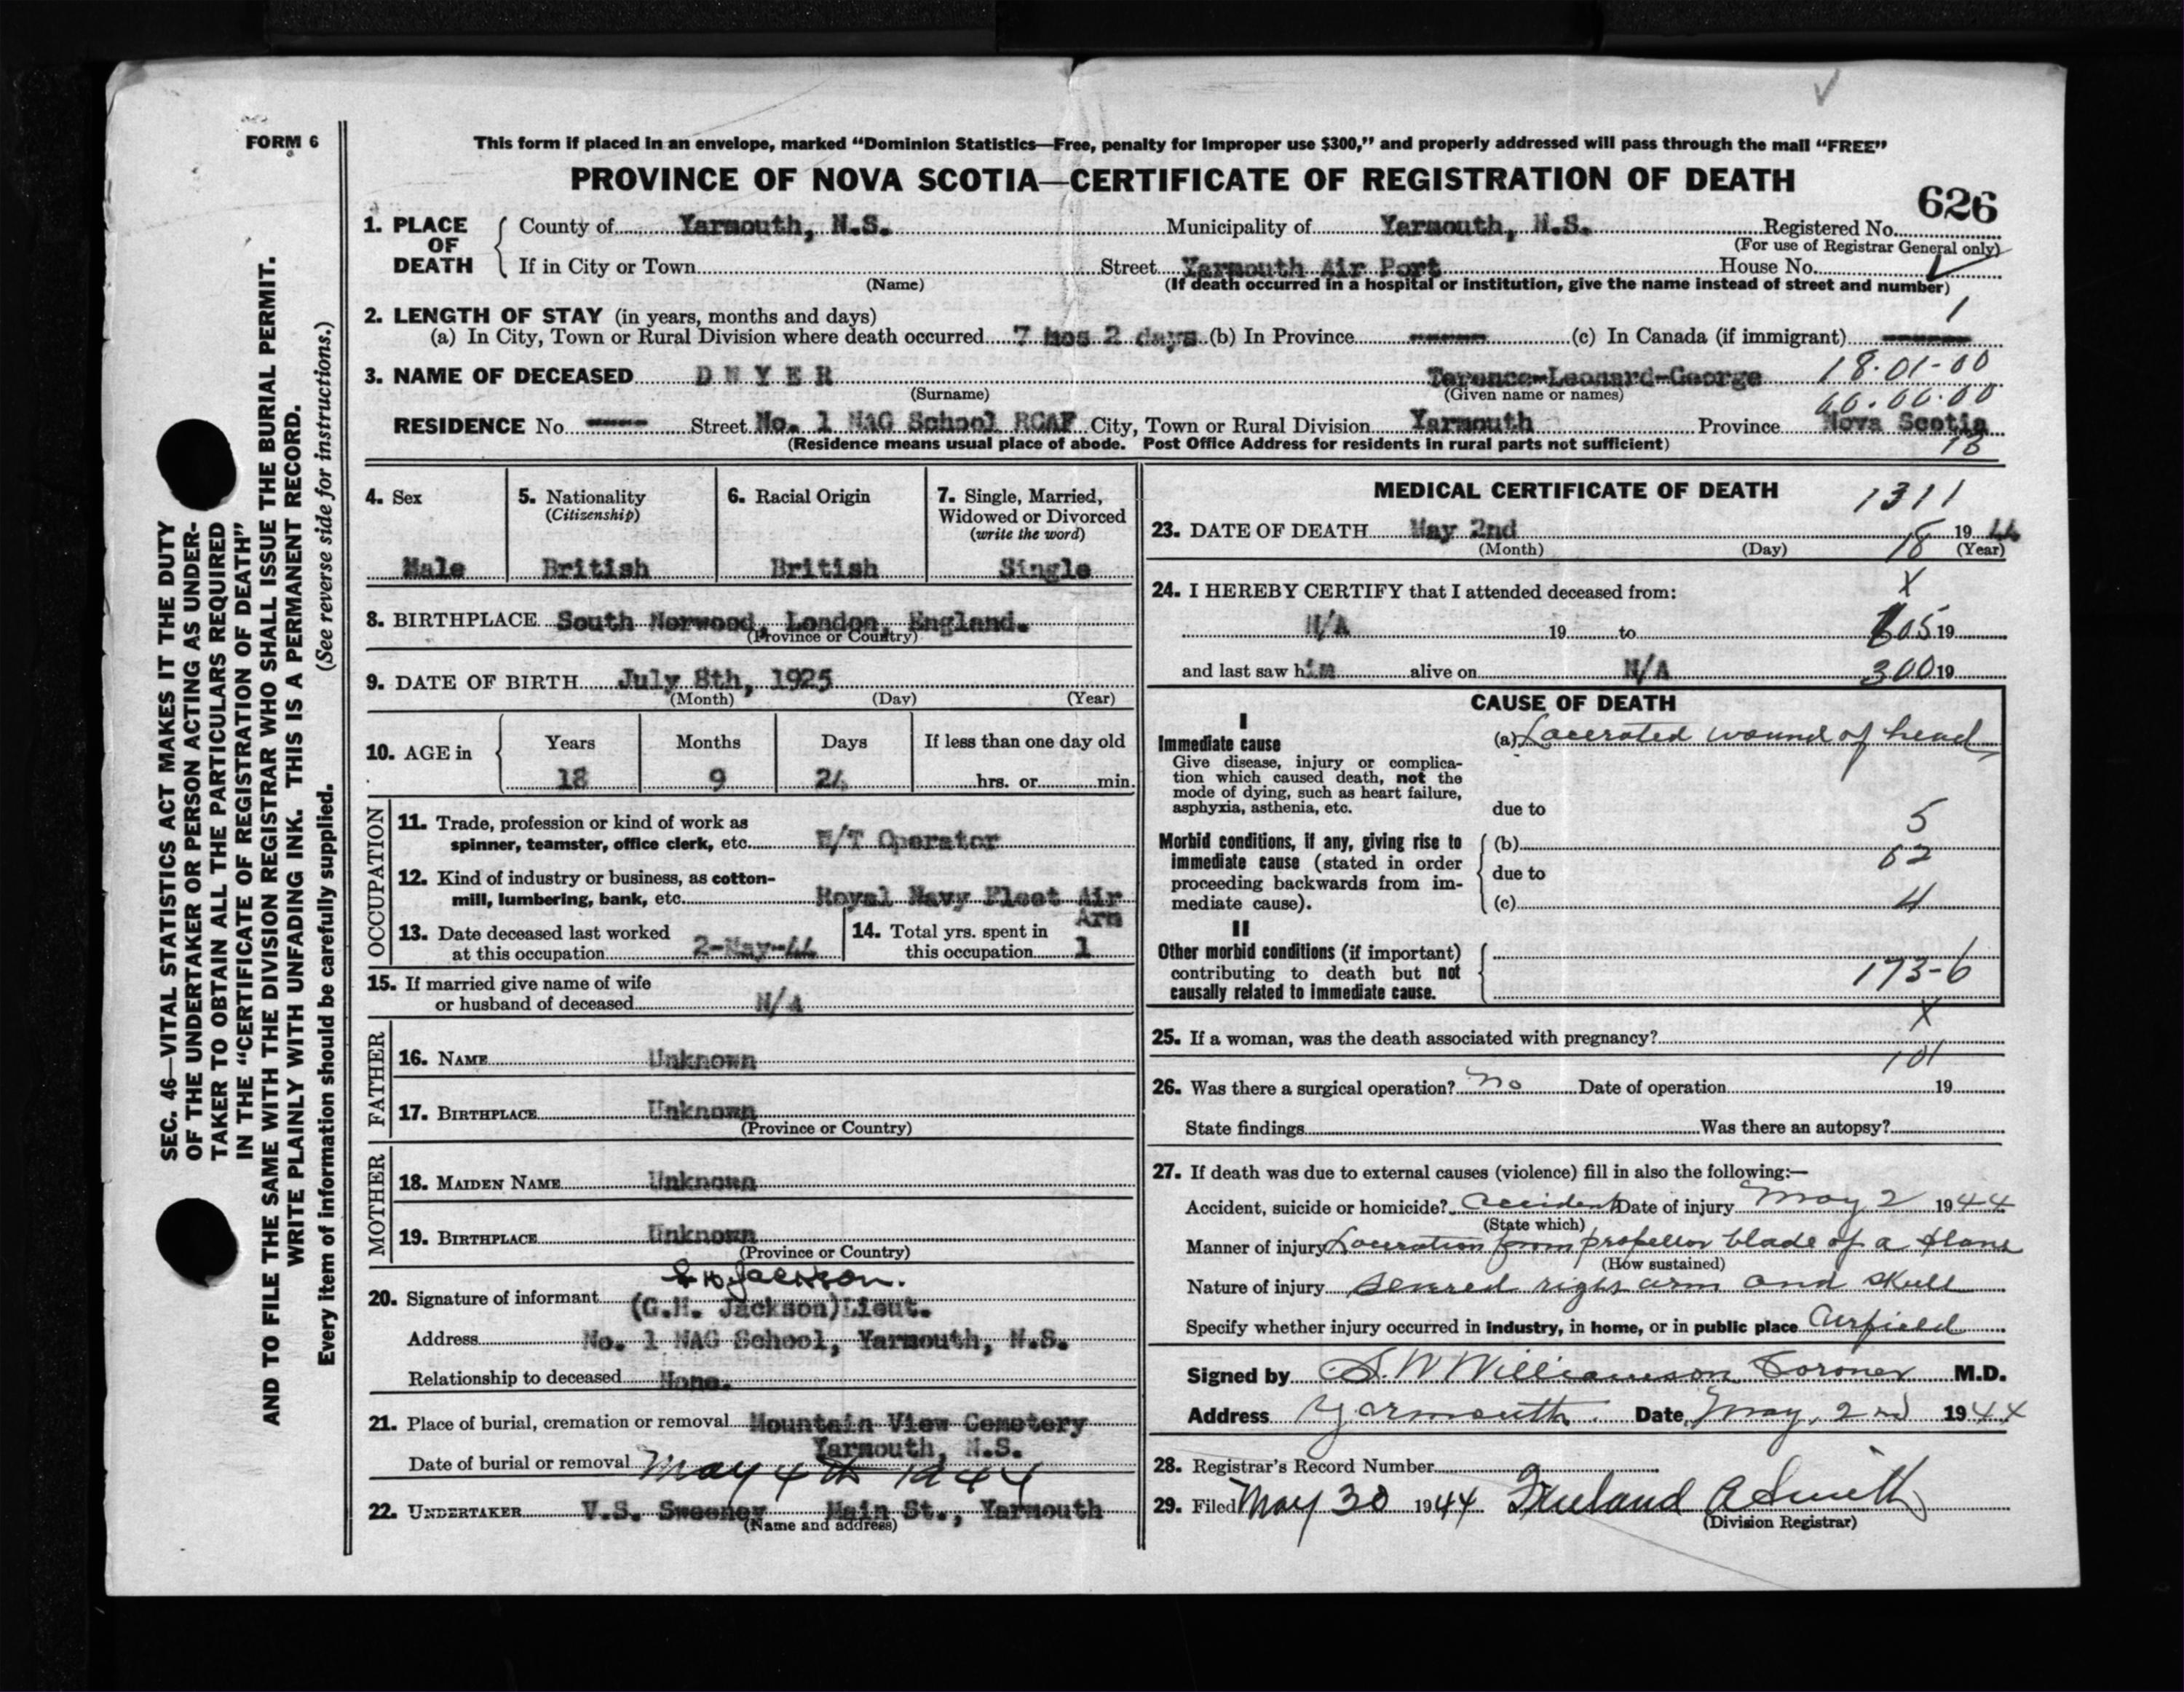 FORM 6
This form if placed in an envelope, marked "Dominion Statistics—Free, penalty for improper use $300," and properly addressed will pass through the mail "FREE"
PROVINCE OF NOVA SCOTIA—CERTIFICATE OF REGISTRATION OF DEATH
626
1. PLACE OF DEATH
County of Yarmouth, N.S. Municipality of Yarmouth, N.S. Registered No.
(For use of Registrar General only)
If in City or Town Street Yarmouth Air Port House No.
(Name) (If death occurred in a hospital or institution, give the name instead of street and number)
1
2. LENGTH OF STAY (in years, months and days)
(a) In City, Town or Rural Division where death occurred 7 mos 2 days (b) In Province ------ (c) In Canada (if immigrant) ------
3. NAME OF DECEASED DWYER Terence-Leonard-George 18.01-00
(Surname) (Given name or names)
RESIDENCE No. ------ Street No. 1 NAG School RCAF City, Town or Rural Division Yarmouth Province Nova Scotia
(Residence means usual place of abode. Post Office Address for residents in rural parts not sufficient) 18
4. Sex
Male
5. Nationality
(Citizenship)
British
6. Racial Origin
British
7. Single, Married,
Widowed or Divorced
(write the word)
Single
8. BIRTHPLACE South Norwood, London, England.
(Province or Country)
9. DATE OF BIRTH July 8th, 1925
(Month) (Day) (Year)
10. AGE in
Years Months Days If less than one day old
18 9 24 hrs. or min.
OCCUPATION
11. Trade, profession or kind of work as
spinner, teamster, office clerk, etc. W/T Operator
12. Kind of industry or business, as cotton-
mill, lumbering, bank, etc. Royal Navy Fleet Air
Arm
13. Date deceased last worked
at this occupation 2-May-44
14. Total yrs. spent in
this occupation 1
15. If married give name of wife
or husband of deceased N/A
FATHER
16. NAME Unknown
17. BIRTHPLACE Unknown
(Province or Country)
MOTHER
18. MAIDEN NAME Unknown
19. BIRTHPLACE Unknown
(Province or Country)
G H Jackson.
20. Signature of informant (G.H. Jackson) Lieut.
Address No. 1 NAG School, Yarmouth, N.S.
Relationship to deceased None.
21. Place of burial, cremation or removal Mountain View Cemetery
Yarmouth, N.S.
Date of burial or removal May 4th 1944
22. UNDERTAKER V.S. Sweeney Main St., Yarmouth
(Name and address)
MEDICAL CERTIFICATE OF DEATH
1311
23. DATE OF DEATH May 2nd 19 44
(Month) (Day) 18 (Year)
24. I HEREBY CERTIFY that I attended deceased from: X
N/A 19 to 605 19
and last saw him alive on N/A 300 19
CAUSE OF DEATH
I
Immediate cause
Give disease, injury or complica-
tion which caused death, not the
mode of dying, such as heart failure,
asphyxia, asthenia, etc.
(a) Lacerated wound of head
due to
5
Morbid conditions, if any, giving rise to
immediate cause (stated in order
proceeding backwards from im-
mediate cause).
(b)
62
due to
(c) 4
II
Other morbid conditions (if important)
contributing to death but not
causally related to immediate cause.
173-6
X
25. If a woman, was the death associated with pregnancy?
101
26. Was there a surgical operation? No Date of operation 19
State findings Was there an autopsy?
27. If death was due to external causes (violence) fill in also the following:—
Accident, suicide or homicide? Accident Date of injury May 2 1944
(State which)
Manner of injury Laceration from propellor blade of a plane
(How sustained)
Nature of injury severed right arm and skull
Specify whether injury occurred in industry, in home, or in public place Airfield
Signed by S. W Williamson Coroner M.D.
Address Yarmouth. Date May, 2nd 1944
28. Registrar's Record Number
29. Filed May 30 1944 Freeland A Smith
(Division Registrar)
SEC. 46—VITAL STATISTICS ACT MAKES IT THE DUTY
OF THE UNDERTAKER OR PERSON ACTING AS UNDER-
TAKER TO OBTAIN ALL THE PARTICULARS REQUIRED
IN THE "CERTIFICATE OF REGISTRATION OF DEATH"
AND TO FILE THE SAME WITH THE DIVISION REGISTRAR WHO SHALL ISSUE THE BURIAL PERMIT.
WRITE PLAINLY WITH UNFADING INK. THIS IS A PERMANENT RECORD.
Every item of information should be carefully supplied. (See reverse side for instructions.)